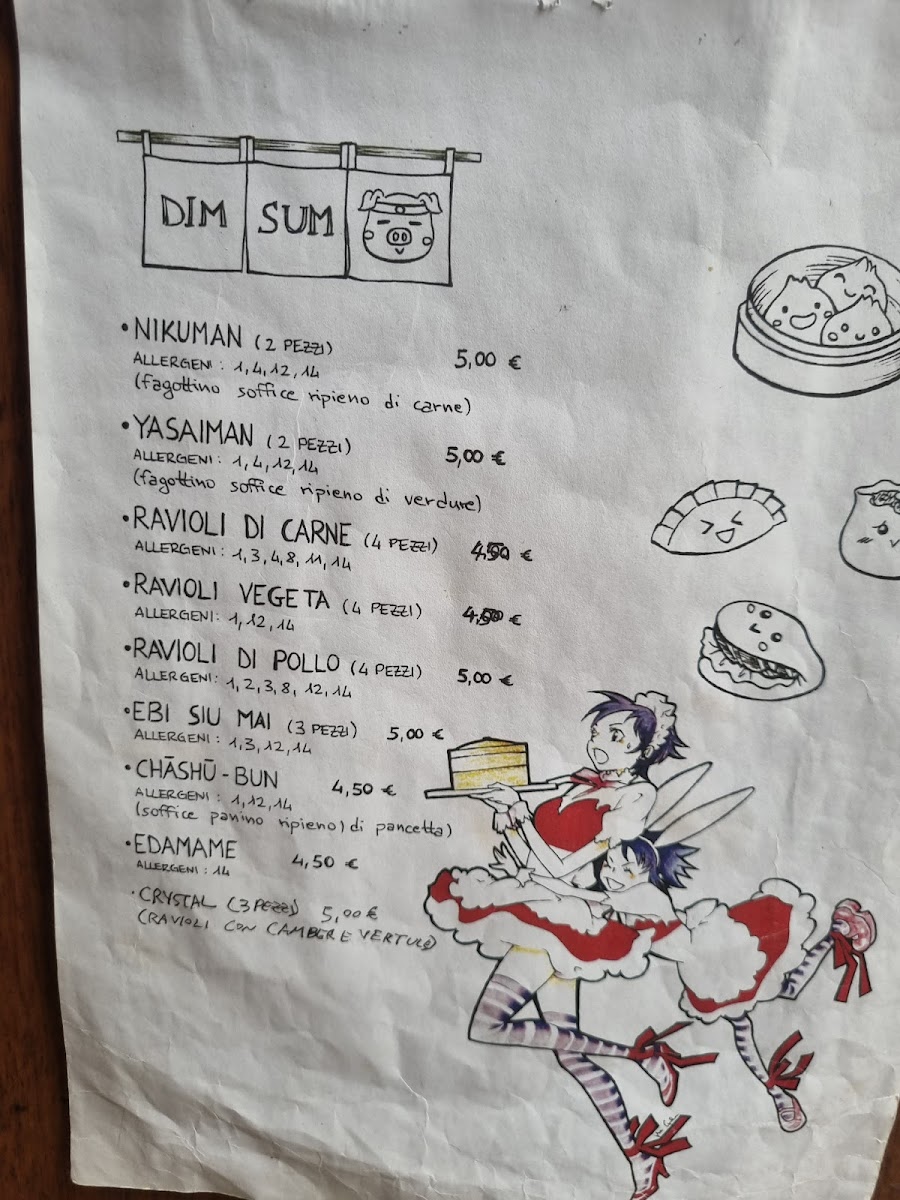 DIM SUM
• NIKUMAN (2 PEZZI) 5,00 €
ALLERGENI: 1,4,12,14
(fagottino soffice ripieno di carne)
• YASAIMAN (2 PEZZI) 5,00 €
ALLERGENI: 1,4,12,14
(fagottino soffice ripieno di verdure)
• RAVIOLI DI CARNE (4 PEZZI) 4,50 €
ALLERGENI: 1,3,4,8,11,14
• RAVIOLI VEGETA (4 PEZZI) 4,50 €
ALLERGENI: 1,12,14
• RAVIOLI DI POLLO (4 PEZZI) 5,00 €
ALLERGENI: 1,2,3,8,12,14
• EBI SIU MAI (3 PEZZI) 5,00 €
ALLERGENI: 1,3,12,14
• CHĀSHŪ-BUN 4,50 €
ALLERGENI: 1,12,14
(soffice panino ripieno) di pancetta)
• EDAMAME 4,50 €
ALLERGENI: 14
• CRYSTAL (3 PEZZI) 5,00 €
(RAVIOLI CON